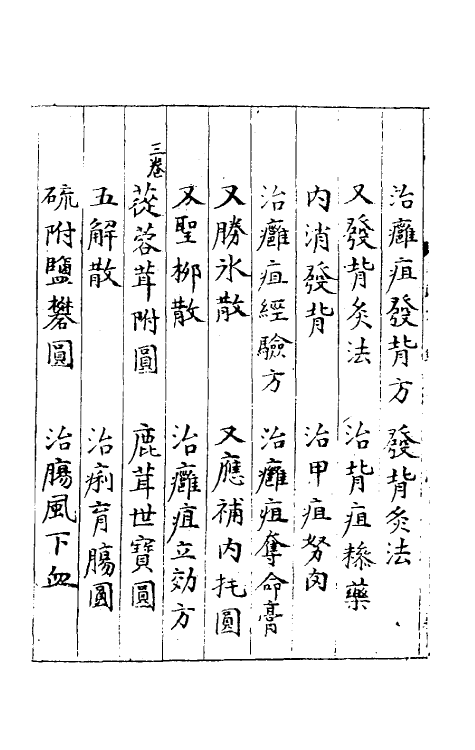 治癰疽發背方 發背灸法
又發背灸法 治背疽糝藥
內消發背 治甲疽努肉
治癰疽經驗方 治癰疽奪命膏
又勝氷散 又應補內托圓
又聖栁散 治癰疽立効方
三卷 蓯蓉茸附圓 鹿茸世寶圓
五解散 治痢育腸圓
硫附鹽礬圓 治腸風下血